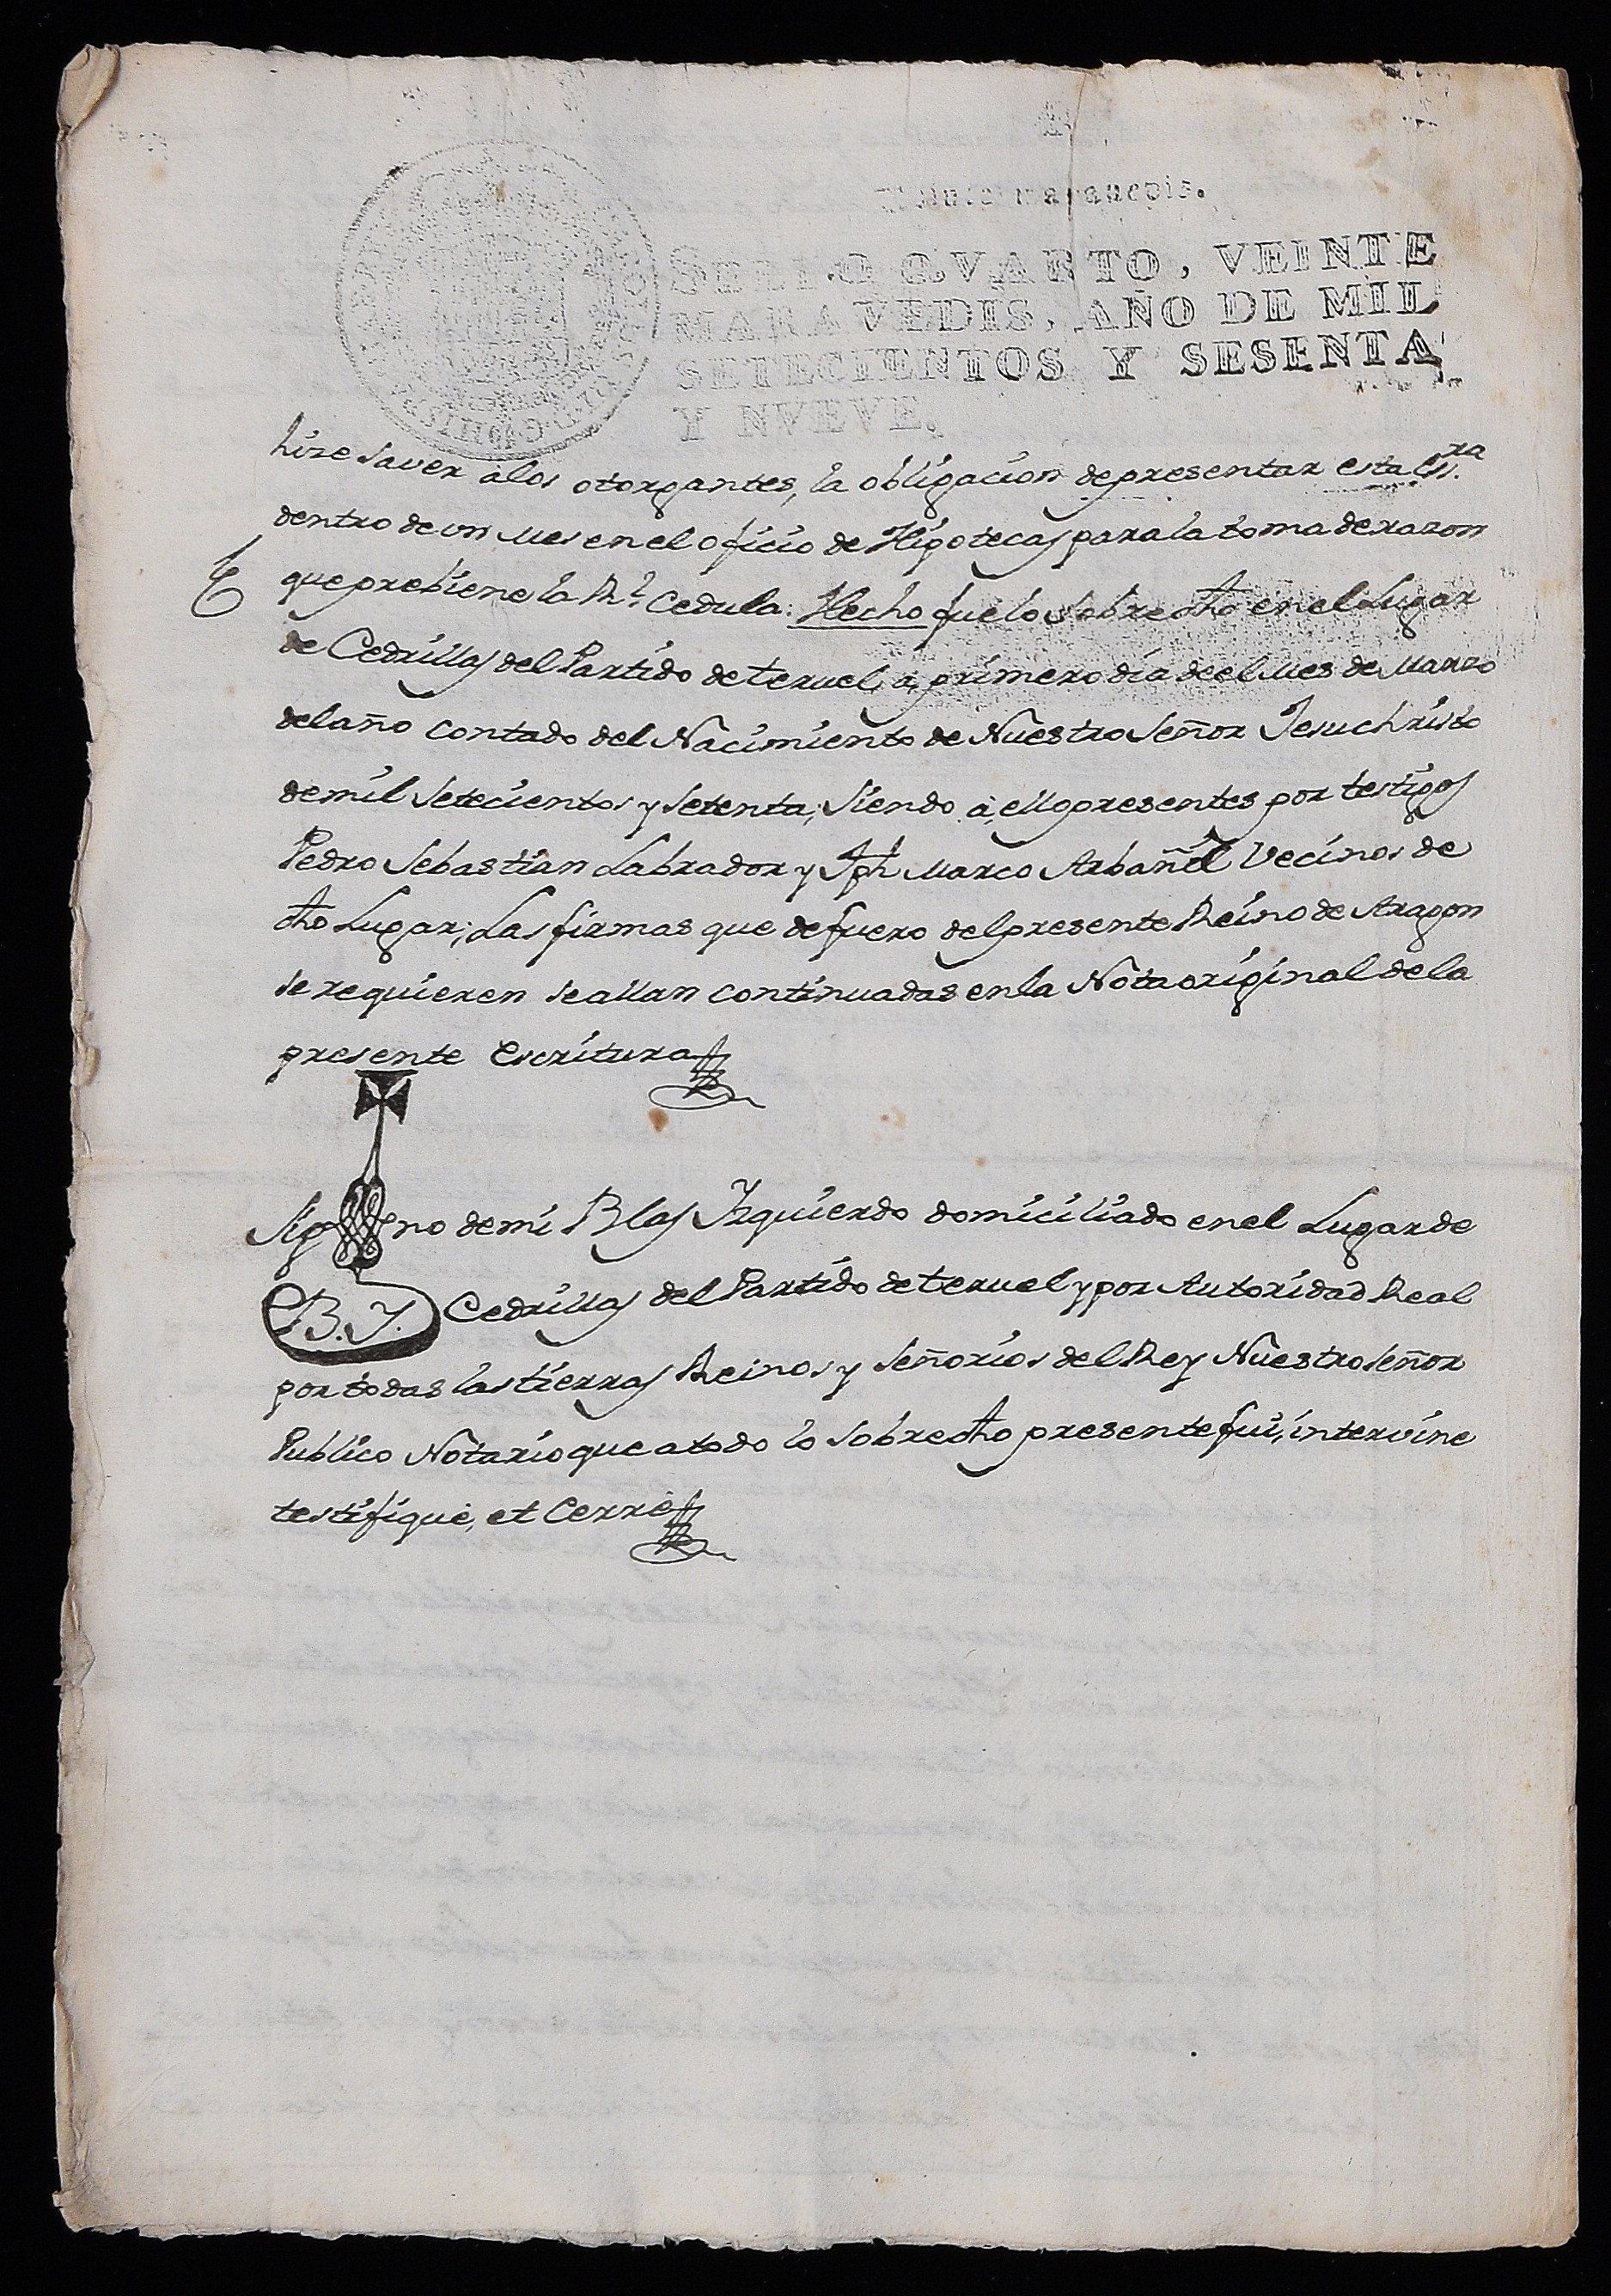 Veinte maravedis.
SELLO QVARTO, VEINTE
MARAVEDIS, AÑO DE MIL
SETECIENTOS Y SESENTA
Y NVEVE.
hize saver a los otorgantes, la obligacion de presentar esta Es.ra
dentro de vn mes en el oficio de Hipotecas para la toma de razon
que prebiene la Rl. Cedula: Hecho fue lo sobredho en el Lugar
de Cedrillas del Partido de teruel, a, primero dia de el Mes de Marzo
del año contado del Nacimiento de Nuestro Señor Jesuchristo
de mil setecientos y setenta; siendo à, ello presentes por testigos
Pedro Sebastian Labrador y Jph Marco Arbañil Vecinos de
dho Lugar; Las firmas que de fuero del presente Reino de Aragon
se requieren se allan continuadas en la Nota original de la
presente Escritura
Sig no de mi Blas Yzquierdo domiciliado en el Lugar de
B. Y. Cedrillas del Partido de teruel y por Autoridad Real
por todas las tierras Reinos y Señorios del Rey Nuestro Señor
Publico Notario que a todo lo sobredho presente fui, intervine
testifiquè, et Cerrè